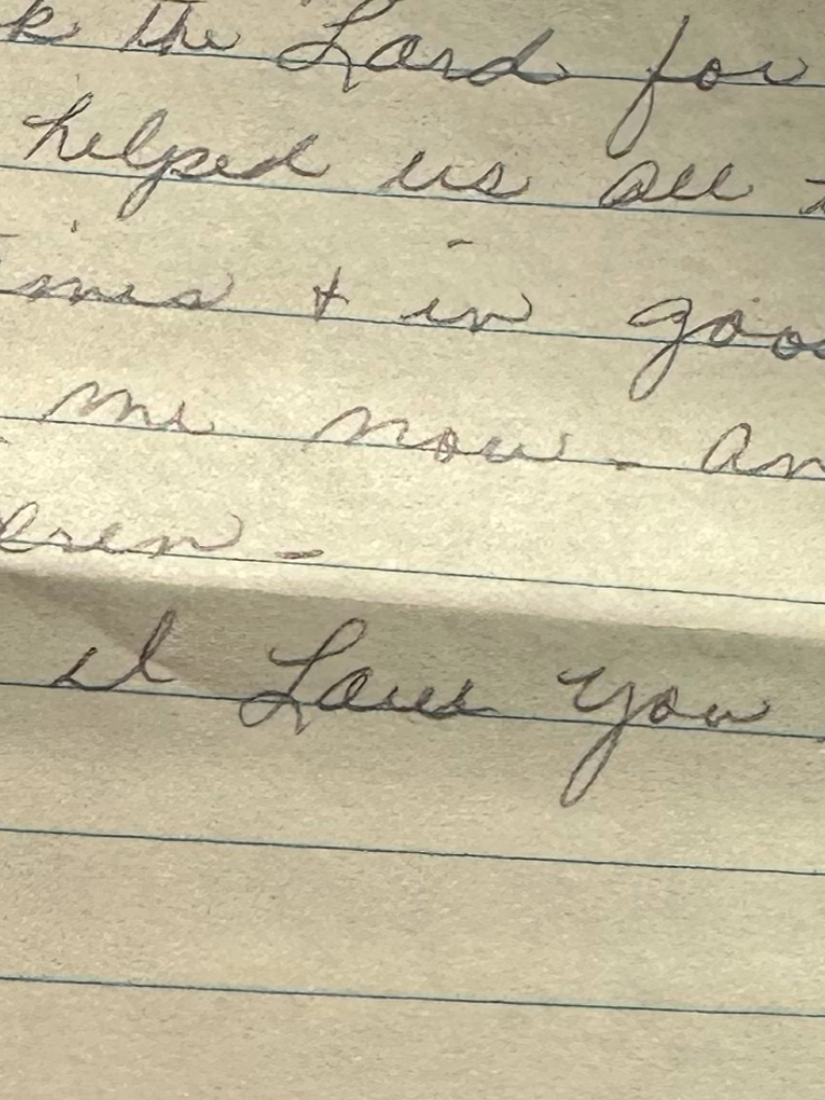 k the Lord for
helped us all t
imes + in goo
me now - an
eren -
I Love you